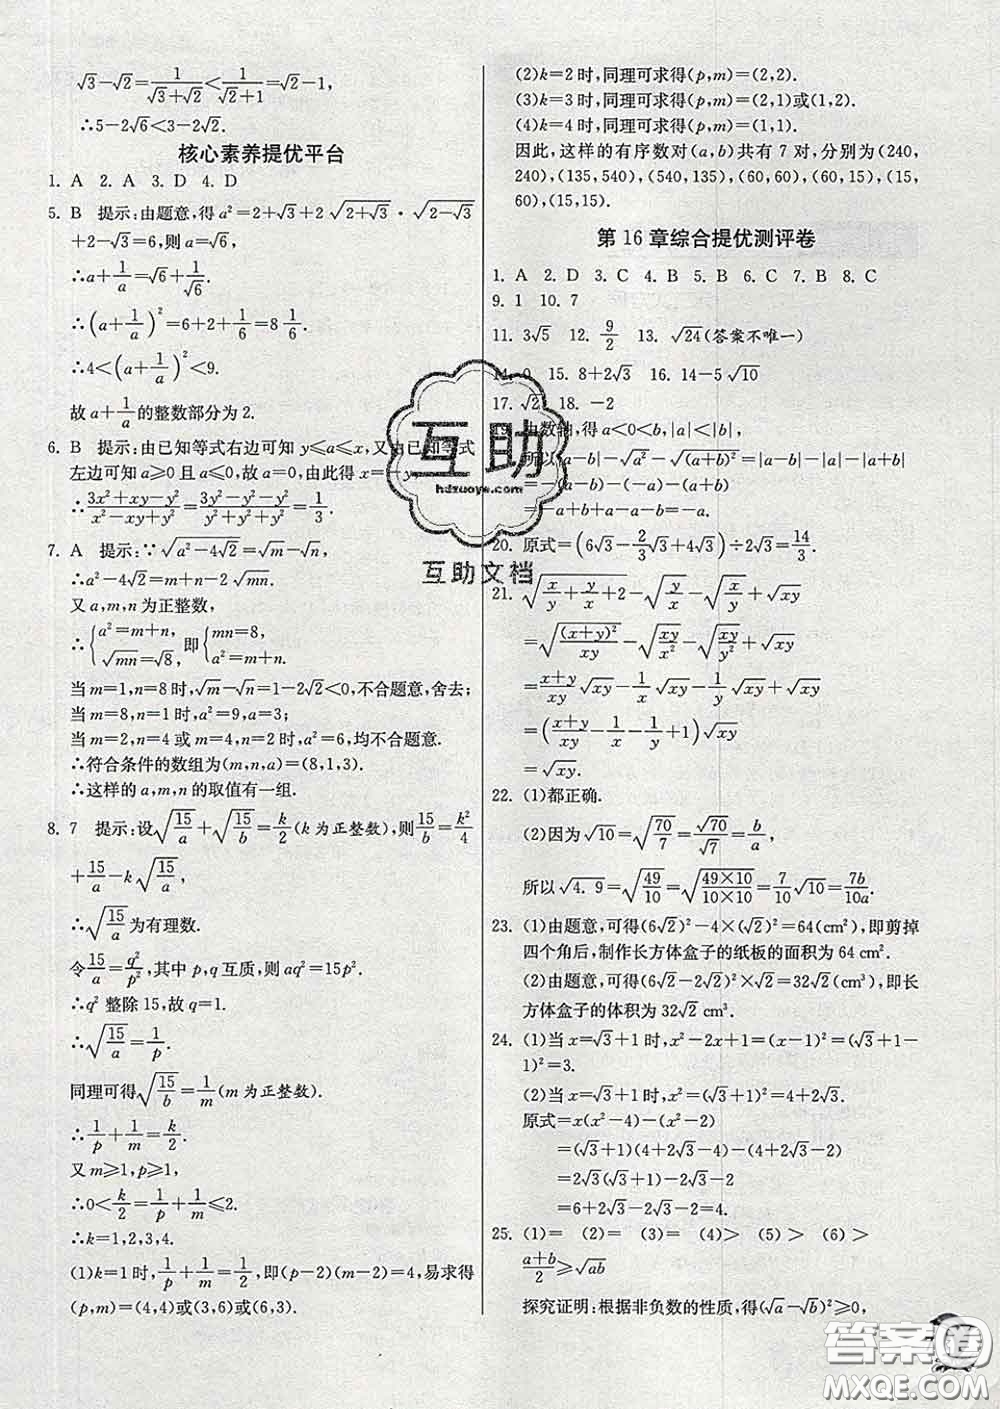 √3−√2=1/(√3+√2)<1/(√2+1)=√2−1,
∴5−2√6<3−2√2.
核心素养提优平台
1. A 2. A 3. D 4. D
5. B 提示:由题意,得 a²=2+√3+2√(2+√3)·√(2−√3)
+2−√3=6,则 a=√6,
∴a+1/a=√6+1/√6.
∴(a+1/a)²=6+2+1/6=8 1/6.
∴4<(a+1/a)²<9.
故 a+1/a 的整数部分为 2.
6. B 提示:由已知等式右边可知 y≤a≤x,又由已知等式
左边可知 a≥0 且 a≤0,故 a=0,由此得 x=−y,
∴(3x²+xy−y²)/(x²−xy+y²)=(3y²−y²−y²)/(y²+y²+y²)=1/3.
7. A 提示:∵√(a²−4√2)=√m−√n,
∴a²−4√2=m+n−2√mn.
又 a,m,n 为正整数,
∴{a²=m+n, √mn=√8, 即{mn=8, a²=m+n.
当 m=1,n=8 时,√m−√n=1−2√2<0,不合题意,舍去;
当 m=8,n=1 时,a²=9,a=3;
当 m=2,n=4 或 m=4,n=2 时,a²=6,均不合题意.
∴符合条件的数组为(m,n,a)=(8,1,3).
∴这样的 a,m,n 的取值有一组.
8. 7 提示:设√(15/a)+√(15/b)=k/2(k 为正整数),则15/b=k²/4
+15/a−k√(15/a),
∴√(15/a)为有理数.
令15/a=q²/p²,其中 p,q 互质,则 aq²=15p².
∴q² 整除 15,故 q=1.
∴√(15/a)=1/p.
同理可得√(15/b)=1/m(m 为正整数).
∴1/p+1/m=k/2.
又 m≥1,p≥1,
∴0<k/2=1/p+1/m≤2.
∴k=1,2,3,4.
(1)k=1 时,1/p+1/m=1/2,即(p−2)(m−2)=4,易求得
(p,m)=(4,4)或(3,6)或(6,3).
(2)k=2 时,同理可求得(p,m)=(2,2).
(3)k=3 时,同理可求得(p,m)=(2,1)或(1,2).
(4)k=4 时,同理可求得(p,m)=(1,1).
因此,这样的有序数对(a,b)共有 7 对,分别为(240,
240),(135,540),(540,135),(60,60),(60,15),(15,
60),(15,15).
第 16 章综合提优测评卷
1. A 2. D 3. C 4. B 5. B 6. C 7. B 8. C
9. 1 10. 7
11. 3√5 12. 9/2 13. √24(答案不唯一)
14. 0 15. 8+2√3 16. 14−5√10
17. √2 18. −2
19. 由数轴,得 a<0<b,|a|<|b|,
所以|a−b|−√a²−√(a+b)²=|a−b|−|a|−|a+b|
=−(a−b)−(−a)−(a+b)
=−a+b+a−a−b=−a.
20. 原式=(6√3−2/3√3+4√3)÷2√3=14/3.
21. √(x/y+y/x+2)−√(y/x)−√(x/y)+√xy
=√((x+y)²/xy)−√(xy/x²)−√(xy/y²)+√xy
=(x+y)/xy √xy−1/x √xy−1/y √xy+√xy
=((x+y)/xy−1/x−1/y+1)√xy
=√xy.
22. (1)都正确.
(2)因为√10=√(70/7)=√70/√7=b/a,
所以√4.9=√(49/10)=√((49×10)/(10×10))=7/10√10=7b/10a.
23. (1)由题意,可得(6√2)²−4×(√2)²=64(cm²),即剪掉
四个角后,制作长方体盒子的纸板的面积为 64 cm².
(2)由题意,可得(6√2−2√2)²×√2=32√2(cm³),即长
方体盒子的体积为 32√2 cm³.
24. (1)当 x=√3+1 时,x²−2x+1=(x−1)²=(√3+1−
1)²=3.
(2)当 x=√3+1 时,x²=(√3+1)²=4+2√3.
原式=x(x²−4)−(x²−2)
=(√3+1)(4+2√3−4)−(4+2√3−2)
=2√3(√3+1)−2√3−2
=6+2√3−2√3−2=4.
25. (1)= (2)= (3)= (4)> (5)> (6)>
(a+b)/2≥√ab
探究证明:根据非负数的性质,得(√a−√b)²≥0,
互助
hdzuoye.com
互助文档
答案圈
MXQE.COM